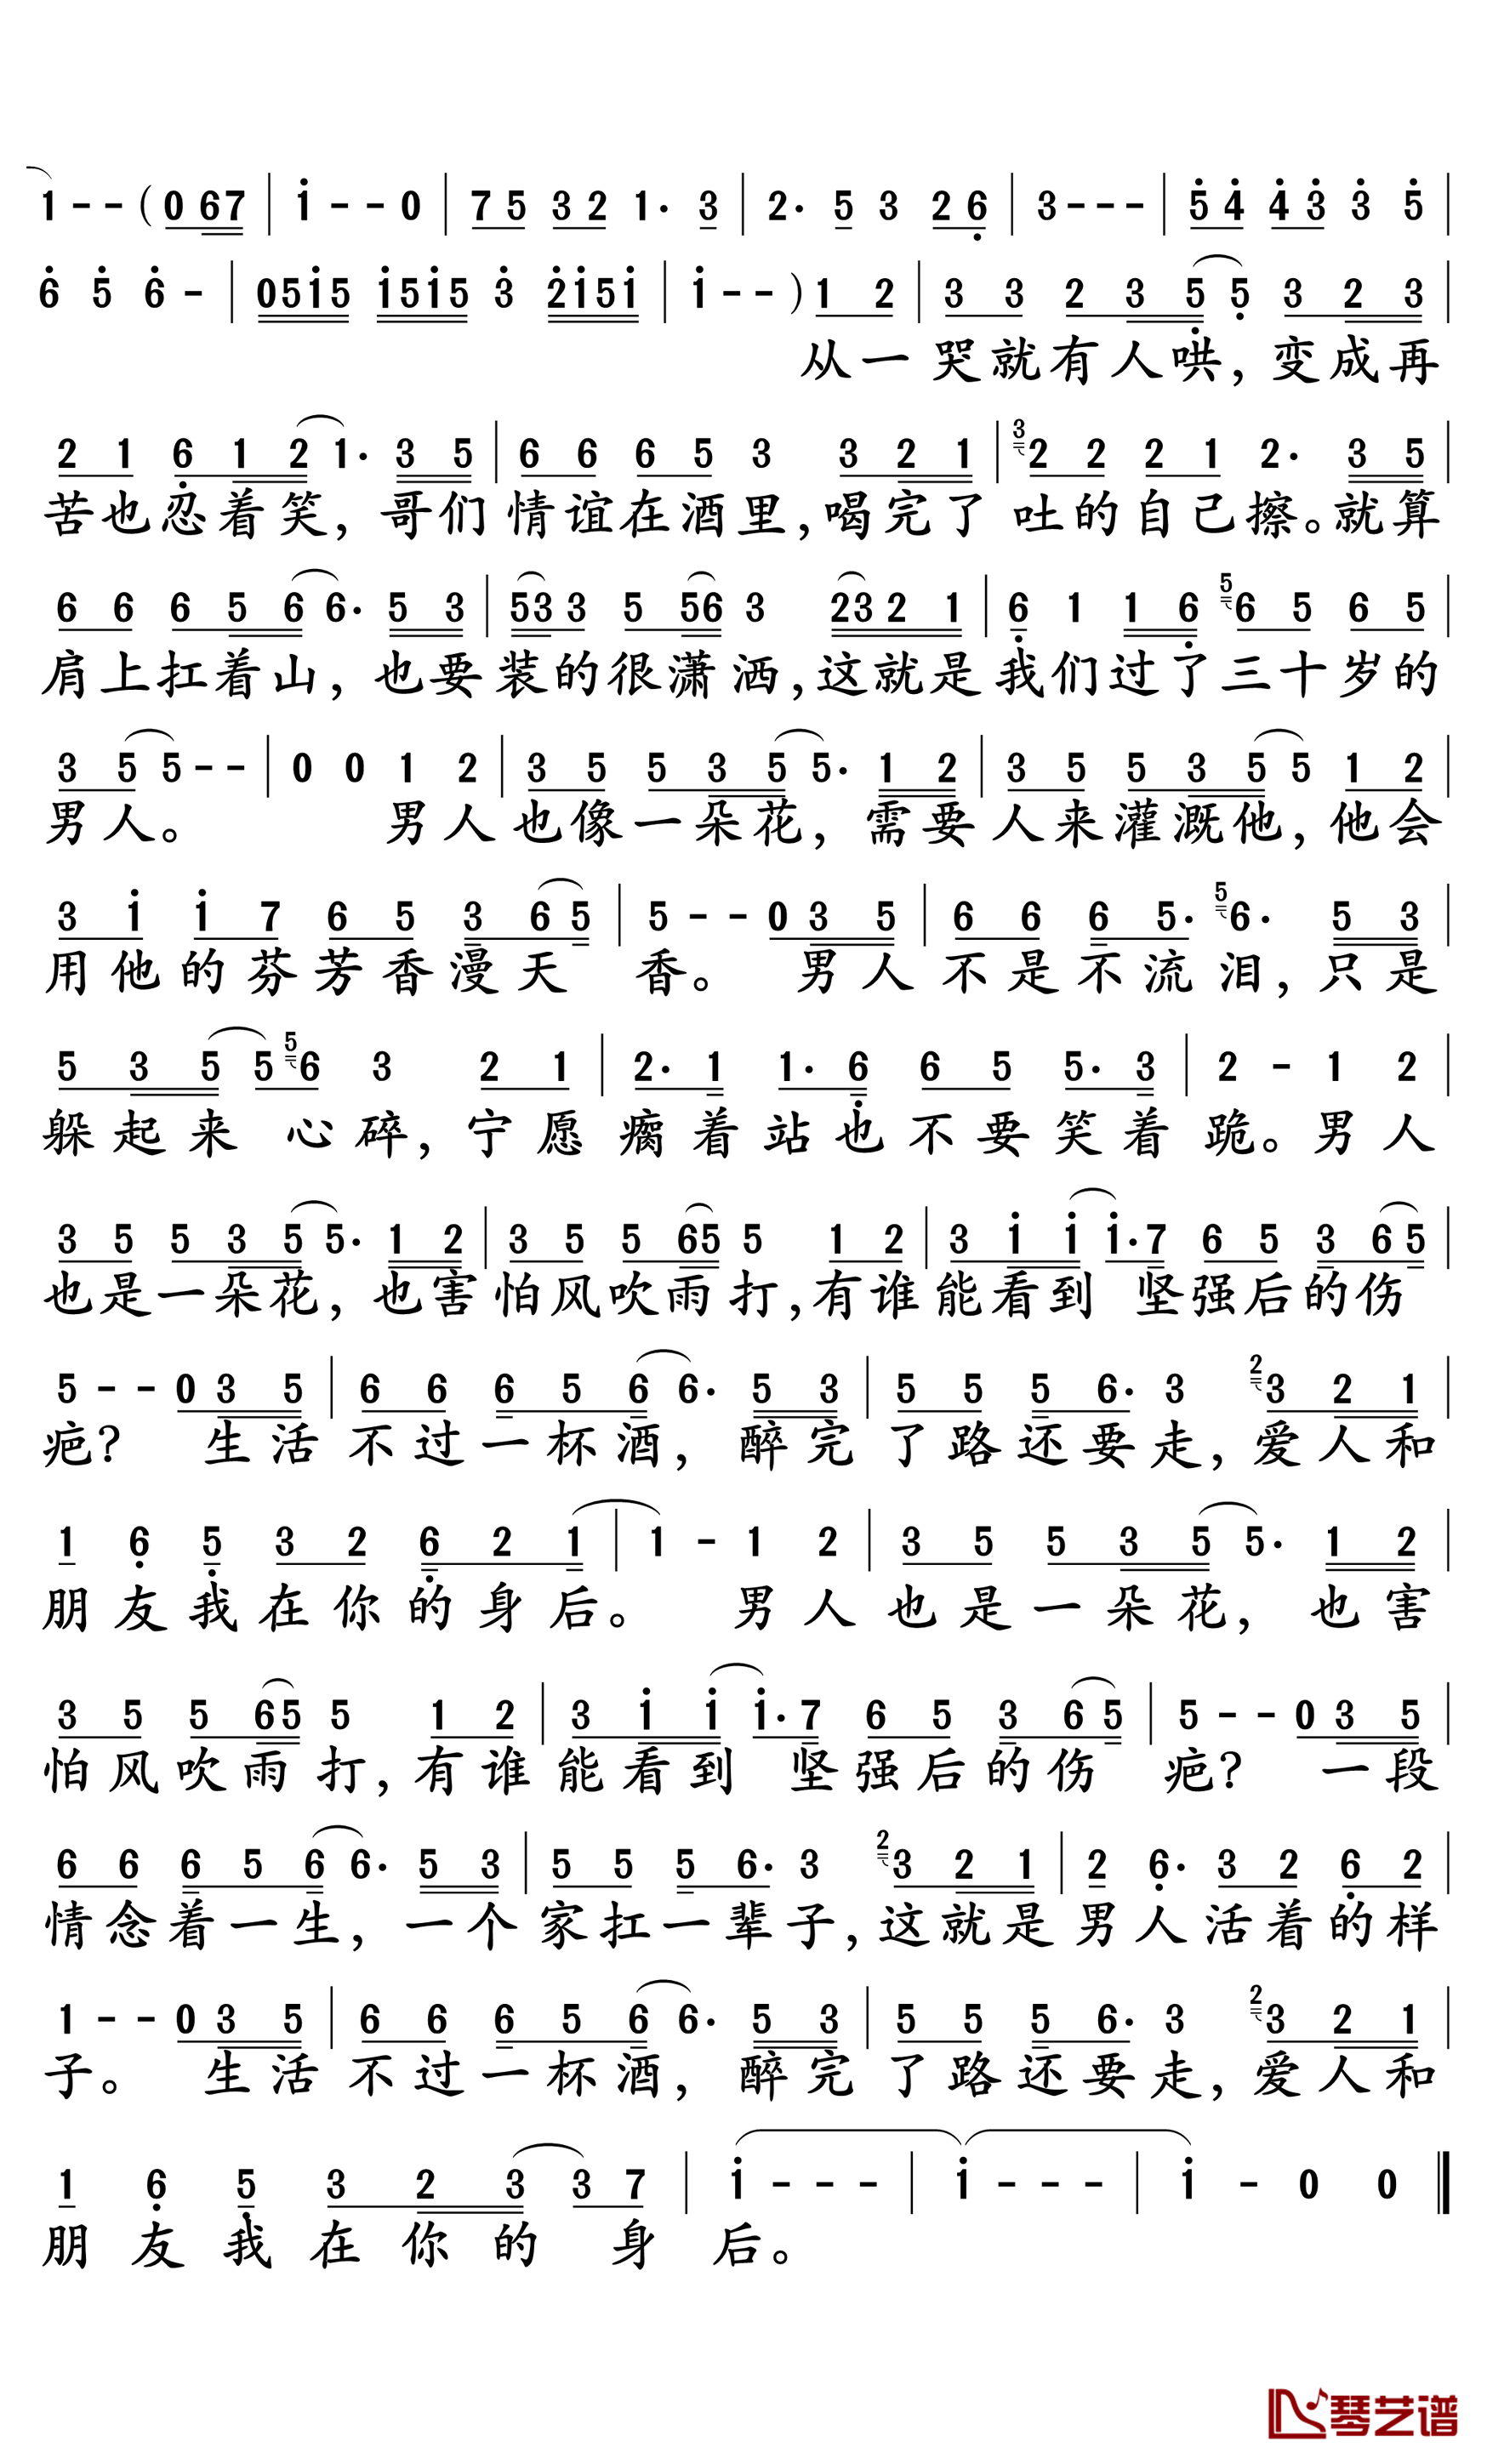 1 - - ( 0 6 7 | i - - 0 | 7 5 3 2 1 · 3 | 2 · 5 3 2 6 | 3 - - - | 5 4 4 3 3 5 |
6 5 6 - | 0 5 i 5 i 5 i 5 3 2 i 5 i | i - - ) 1 2 | 3 3 2 3 5 5 3 2 3 |
从一 哭就有人哄, 变成再
2 1 6 1 2 1 · 3 5 | 6 6 6 5 3 3 2 1 | 3 2 2 2 1 2 · 3 5 |
苦也忍着笑, 哥们 情谊在酒里,喝完了 吐的自己擦。就算
6 6 6 5 6 6 · 5 3 | 5 3 3 5 5 6 3 2 3 2 1 | 6 1 1 6 5 6 5 6 5 |
肩上扛着山, 也要装的很潇洒,这就是 我们过了三十岁的
3 5 5 - - | 0 0 1 2 | 3 5 5 3 5 5 · 1 2 | 3 5 5 3 5 5 1 2 |
男人。 男人也像一朵花, 需要 人来灌溉他, 他会
3 i i 7 6 5 3 6 5 | 5 - - 0 3 5 | 6 6 6 5 · 5 6 · 5 3 |
用他的芬芳香漫天 香。 男人 不是不流泪, 只是
5 3 5 5 5 6 3 2 1 | 2 · 1 1 · 6 6 5 5 · 3 | 2 - 1 2 |
躲起来 心碎, 宁愿 瘸着站也不要笑着 跪。男人
3 5 5 3 5 5 · 1 2 | 3 5 5 6 5 5 1 2 | 3 i i i · 7 6 5 3 6 5 |
也是一朵花, 也害 怕风吹雨打,有谁能看到 坚强后的伤
5 - - 0 3 5 | 6 6 6 5 6 6 · 5 3 | 5 5 5 6 · 3 2 3 2 1 |
疤? 生活 不过一杯酒, 醉完 了路还要走, 爱人和
1 6 5 3 2 6 2 1 | 1 - 1 2 | 3 5 5 3 5 5 · 1 2 |
朋友我在你的身后。 男人 也是一朵花, 也害
3 5 5 6 5 5 1 2 | 3 i i i · 7 6 5 3 6 5 | 5 - - 0 3 5 |
怕风吹雨打, 有谁 能看到 坚强后的伤 疤? 一段
6 6 6 5 6 6 · 5 3 | 5 5 5 6 · 3 2 3 2 1 | 2 6 · 3 2 6 2 |
情念着一生, 一个 家扛一辈子,这就是 男人活着的样
1 - - 0 3 5 | 6 6 6 5 6 6 · 5 3 | 5 5 5 6 · 3 2 3 2 1 |
子。 生活 不过一杯酒, 醉完 了路还要走, 爱人和
1 6 5 3 2 3 3 7 | i - - - | i - - - | i - 0 0 ‖
朋友我在你的 身 后。
琴艺谱